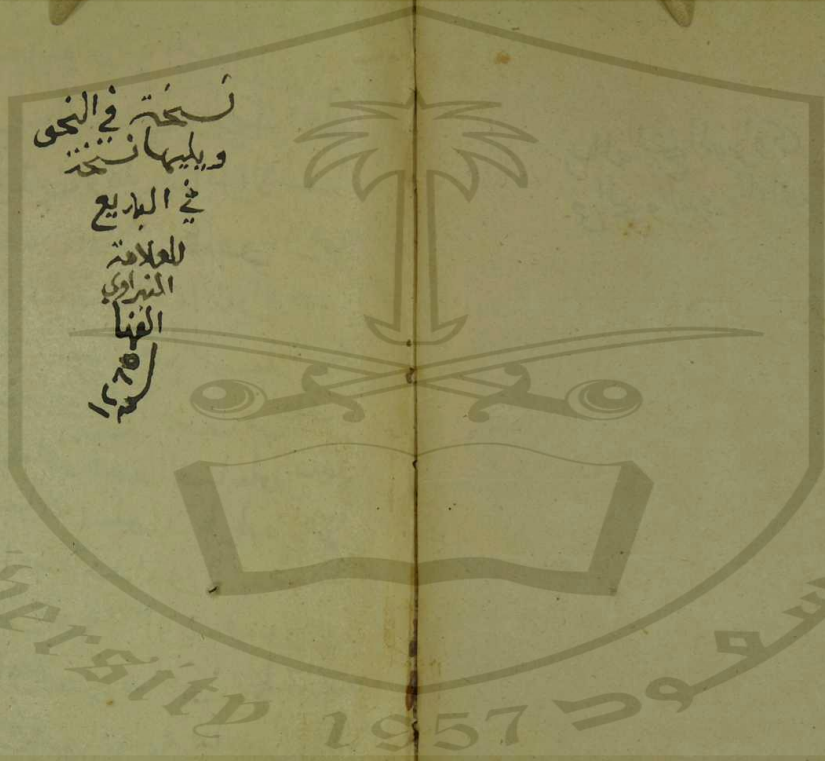 نسخة في النحو
ويليها نسخة
في البديع
للعلامة
النبراوي
الفها
سنة ١٢٧٥
ersity 1957
سعود